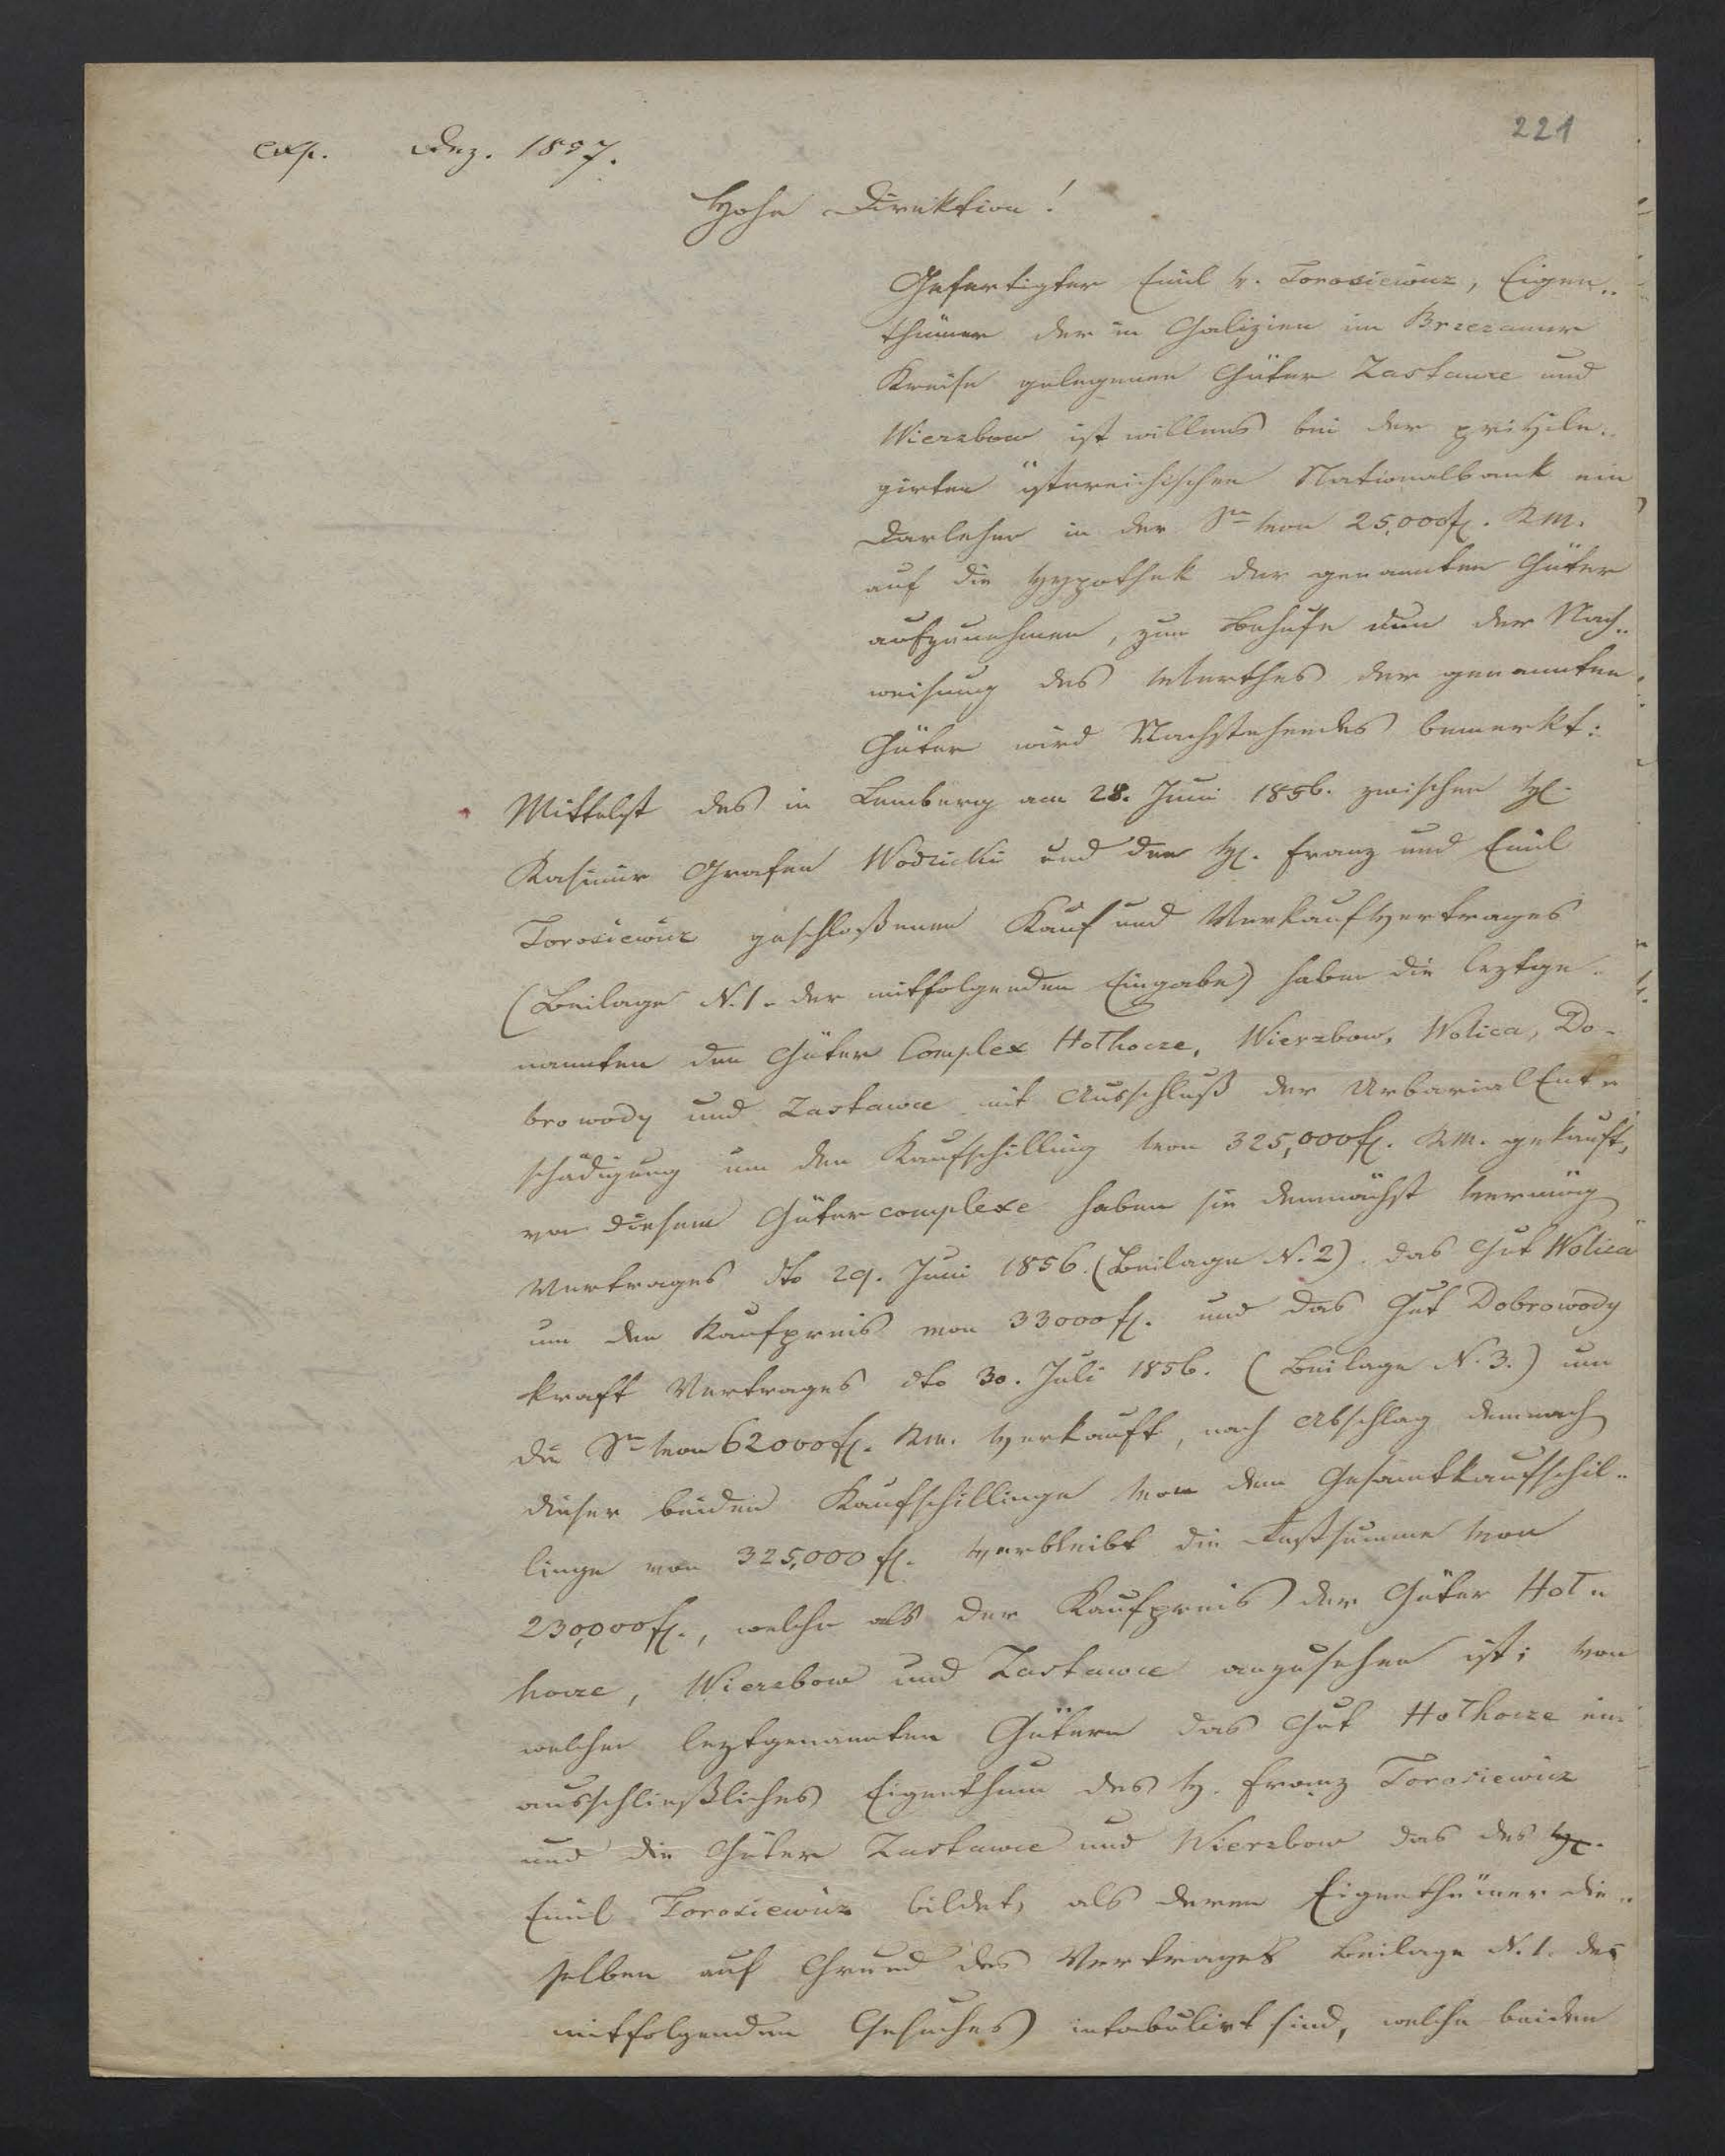 221
exp. Dez. 1857.
Hohe Direktion!
Gefertigter Emil v. Torosiewicz, Eigen„
thümer der in Galizien im Brzezaner
Kreise gelegenen Güter Zastawce und
Wierzbow ist willens bei der privile„
girten östereichischen Nationalbank ein
Darlehen in der Sme von 25,000 fl. KM.
auf die Hypothek der genannten Güter
aufzunehmen, zum Behufe nun der Nach„
weisung des Werthes der genannten
Güter wird Nachstehendes bemerkt:
Mittelst des in Lemberg am 28. Juni 1856. zwischen H.
Kasimir Grafen Wodzicki und den H. Franz und Emil
Torosiewicz geschloßenen Kauf und Verkaufvertrages
(Beilage N. 1. der mitfolgenden Eingabe) haben die leztge„
nannten den Güter Complex Hołhocze, Wierzbow, Wolica, Do„
browody und Zastawce mit Ausschluß der Urbarial Ent„
schädigung um den Kaufschilling von 325,000 fl. KM. gekauft,
von diesem Gütercomplexe haben sie demnächst vermög
Vertrages dto 29. Juni 1856. (Beilage N. 2). das Gut Wolica
um den Kaufpreis von 33000 fl. und das Gut Dobrowody
kraft Vertrages dto 30. Juli 1856. (Beilage N. 3.) um
die Sme von 62000 fl. KM. verkauft, nach Abschlag demnach
dieser beiden Kaufschillinge von dem Gesamtkaufschil„
linge von 325,000 fl. verbleibt die Restsumme von
230,000 fl., welche als der Kaufpreis der Güter Hoł„
hocze, Wierzbow und Zastawce anzusehen ist; von
welchen leztgenannten Gütern das Gut Hołhocze ein
ausschließliches Eigenthum des H. Franz Torosiewicz
und die Güter Zastawce und Wierzbow das des H.
Emil Torosiewicz bildet, als deren Eigenthümer die„
selben auf Grund des Vertrages Beilage N. 1. des
mitfolgenden Gesuches intabulirt sind, welche beiden